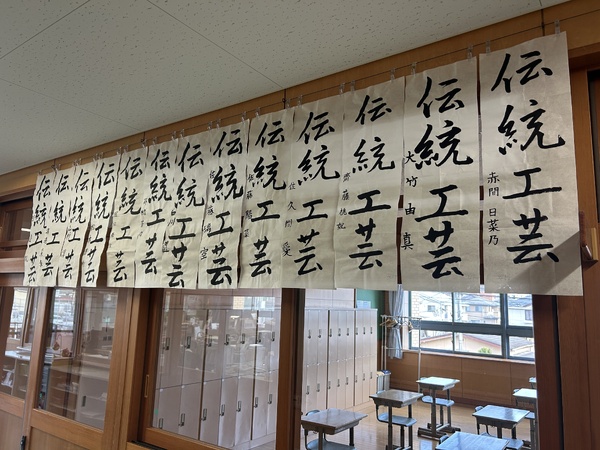 伝統工芸
赤間 日菜乃
伝統工芸
大竹 由真
伝統工芸
伝統工芸
佐久間 愛
伝統工芸
伝統工芸
伝統工芸
伝統工芸
伝統工芸
伝統工芸
伝統工芸
伝統工芸
伝統工芸